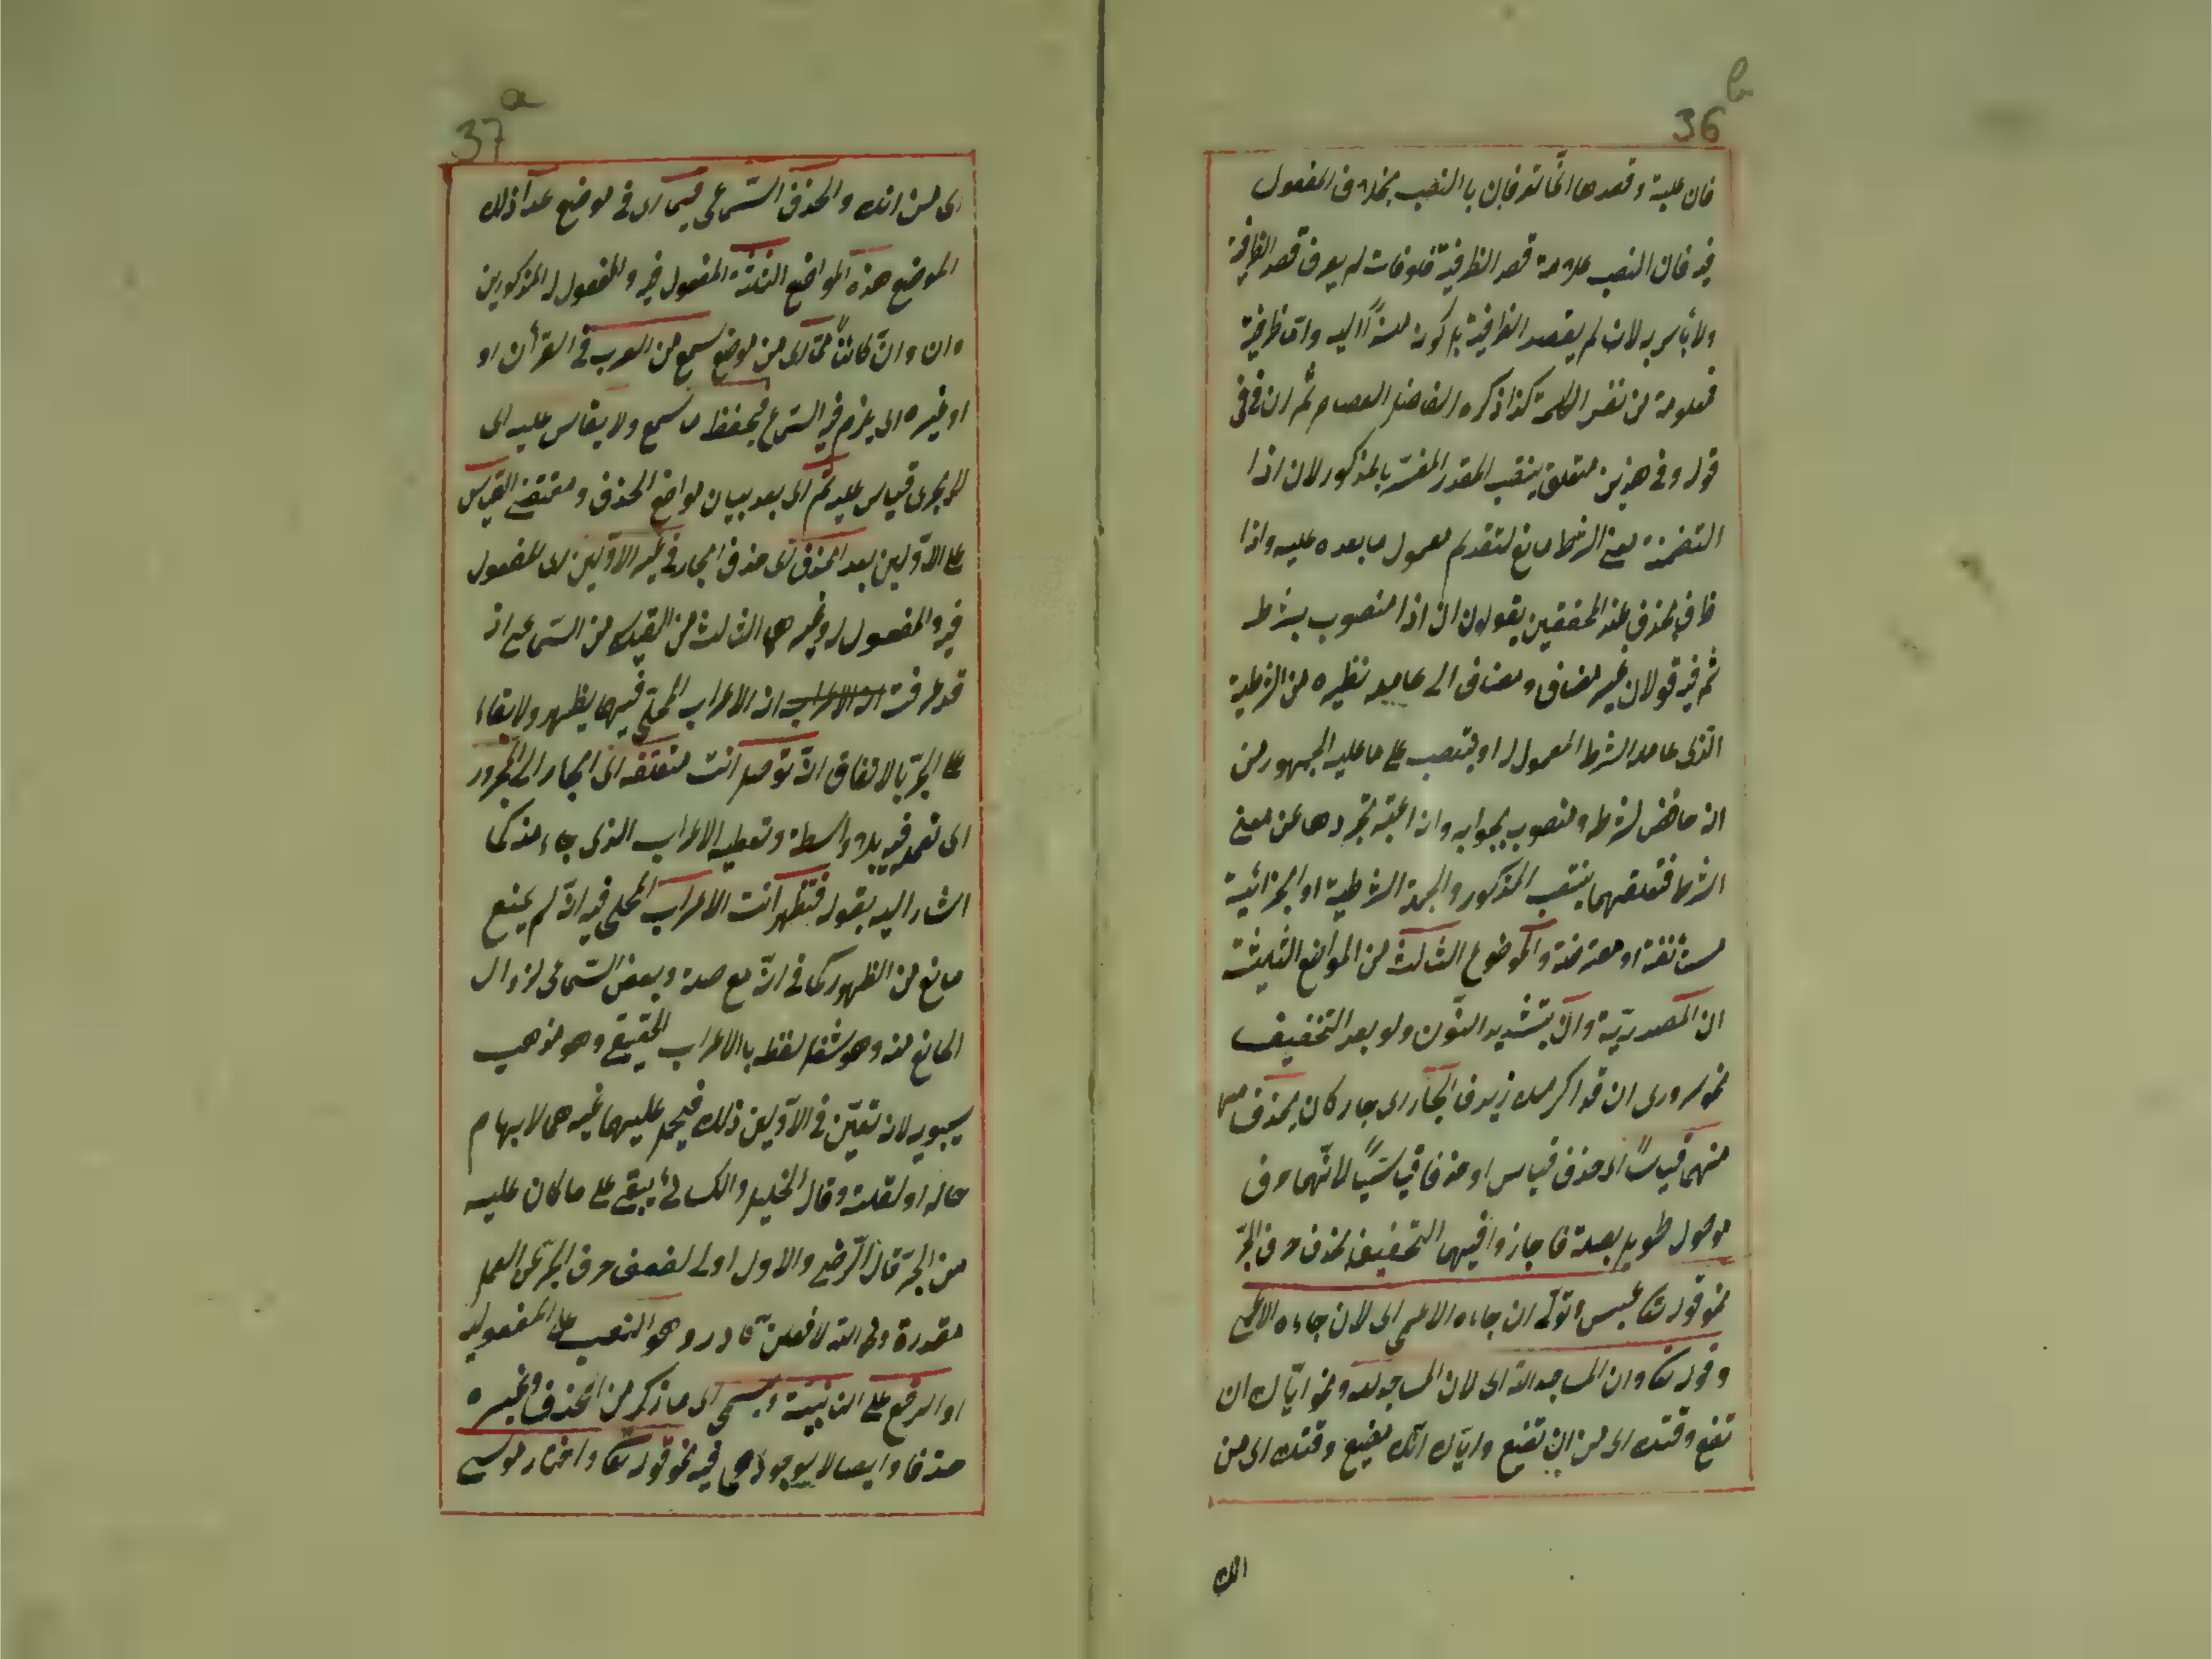 36 b
فان علية وقصدها انما تعرفان بالنصب بخلاف المفعول
فيه فان النصب علامة قصد الظرفية فلو فات لم يعرف قصد الظرفية
ولا بأس به لان لم يقصد الظرفية بل كونه اليه وان ظرفية
معلومة من نفس الكلمة كذا ذكره الفاضل العصام ثم ان في في
قوله وفي هذين متعلق بنصب المقدر المفسر بالمذكور لان اذا
المتضمنة معنى الشرط مانع لتقدم معمول ما بعده عليه واذا
ظرف لحذف عند المحققين يقولون ان اذا منصوب بشرط
ثم فيه قولان غير مضاف ومضاف الى عامله نظيره من الشرطية
الذي عامله الشرط المعمول له او ينتصب على ما عليه الجمهور من
انه خافض لشرطه ومنصوب بجوابه وان اعتبر تجردها عن معنى
الشرط فتعلقهما بنصب المذكور والجملة الشرطية او الجزائية
مستأنفة او معترضة والموضوع الثالث من المواضع الثلثة
ان المصدرية وان بتشديد النون ولو بعد التخفيف
نحو سروري ان قد اكرمك زيد فالجار اى جار كان يحذف
منهما قياسًا اى حذف قياس او حذفا قياسيًا لانهما حرف
موصول طويل بصلة فاجازوا فيهما التخفيف بحذف حرف الجر
نحو قوله تعا عبس وتولى ان جاءه الاعمى اى لان جاءه الاعمى
وقوله تعا وان المساجد لله اى لان المساجد لله ونحو اياك ان
تضيع وقتك اى من ان تضيع واياك انك تضيع وقتك اى من
انك
37 a
اى من انك والحذف السماعى فيما اى في موضع عدا ذلك
الموضع هذه المواضع الثلثة المفعول فيه والمفعول له المذكورين
وان وانّ كائنًا مما اى من موضع سمع من العرب في القرأن او
او غيره اى يلزم فيه السماع فيحفظ ما سمع ولا يقاس عليه اى
لا يجرى قياس عليه ثم اى بعد بيان مواضع الحذف ومقتضى القياس
على الاولين بعد الحذف اى حذف الجار في غير الاولين اى المفعول
فيه والمفعول له وغيرهما الثالث من القياس من السماعى اذ
قد عرفت ان الاعراب ان الاعراب المحلى فيهما يظهر ولا بقاء
على الجر بالاتفاق ان توصل انت متعلقه اى الجار الى المجرور
اى تعديه بلا واسطة وتعطيه الاعراب الذى جاء منه كما
اشار اليه بقوله فتظهر انت الاعراب المحلى فيه ان لم يمنع
مانع من الظهور كما في انّ مع صلة وبعض السماعى لزوال
المانع منه وهو شغل لفظه بالاعراب الحقيقى وهو مذهب
سيبويه لانه تعين في الاولين ذلك فيحمل عليهما غيرهما لابهام
حاله او لقلته وقال الخليل والكسائى يبقى على ما كان عليه
من الجر قال الرضى والاول اولى لضعف حرف الجر عن العمل
مقدرة ولهذا الله لافعلن نادر وهو النصب على المفعولية
او الرفع على النائبية ويسمى اى ما ذكر من الحذف وغيره
حذفا وايصالا لوجودهما فيه نحو قوله تعا واختار موسى